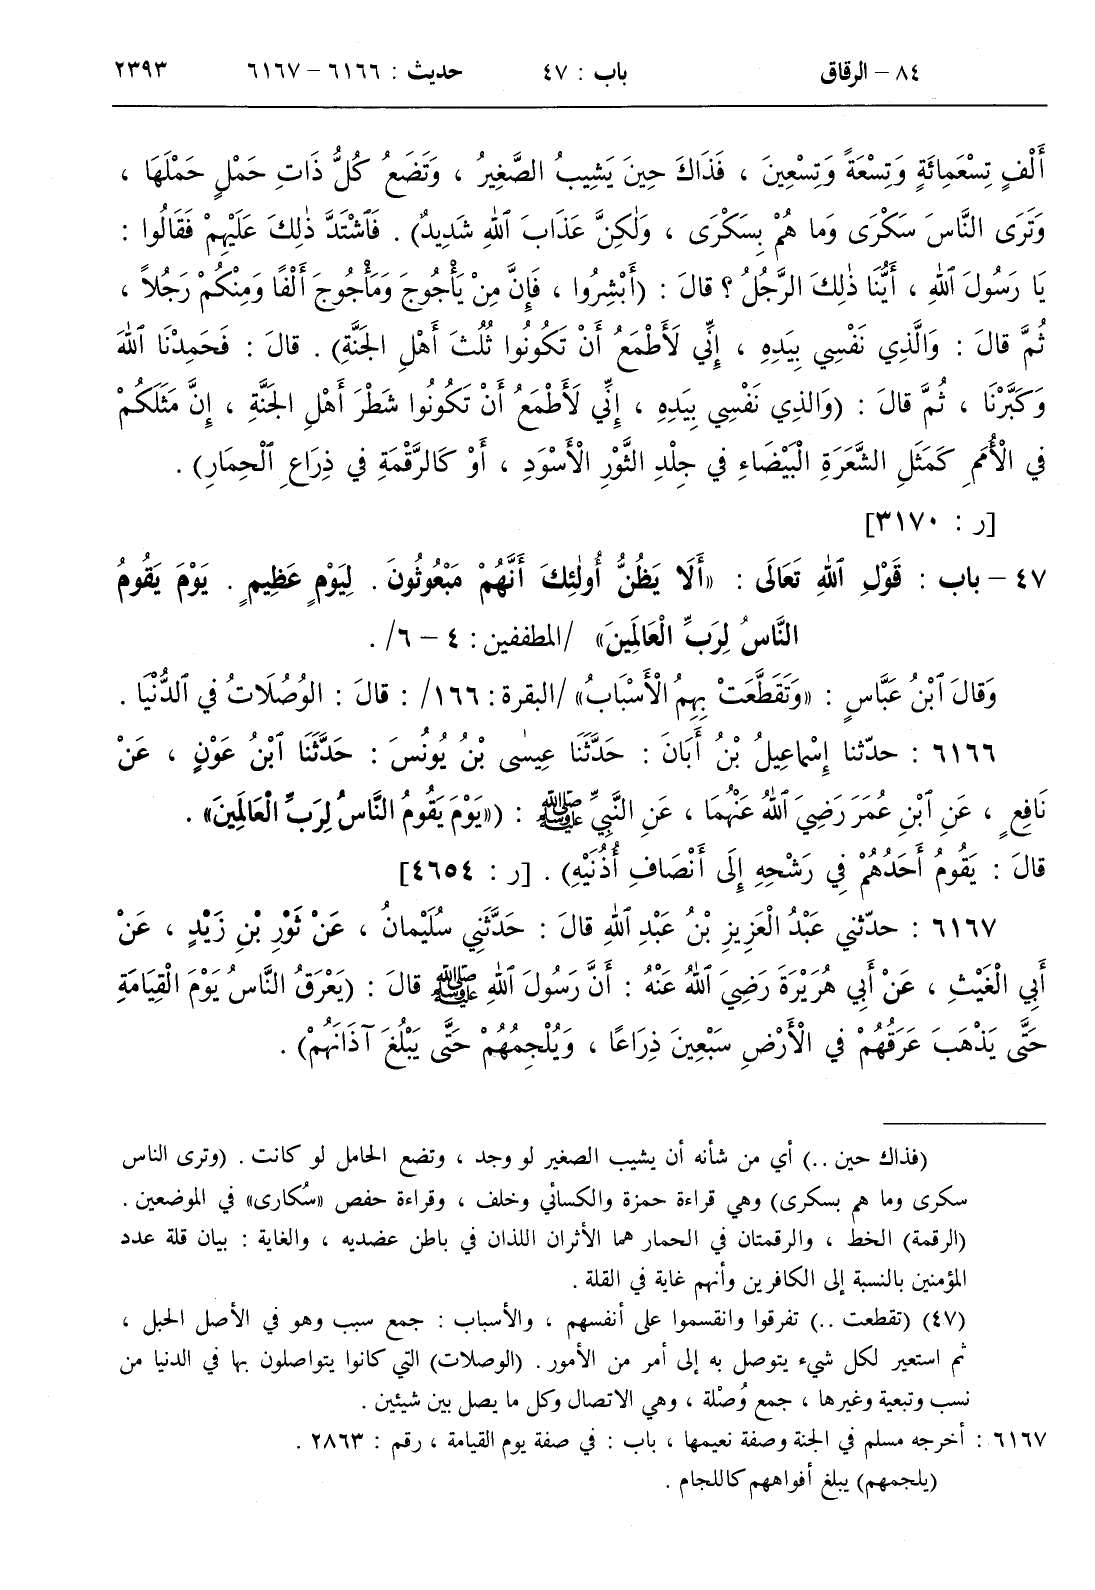 ٨٤ – الرقاق باب : ٤٧ حديث : ٦١٦٦ – ٦١٦٧ ٢٣٩٣
أَلْفٍ تِسْعَمِائَةٍ وَتِسْعَةً وَتِسْعِينَ ، فَذَاكَ حِينَ يَشِيبُ الصَّغِيرُ ، وَتَضَعُ كُلُّ ذَاتِ حَمْلٍ حَمْلَهَا ،
وَتَرَى النَّاسَ سَكْرَى وَما هُمْ بِسَكْرَى ، وَلٰكِنَّ عَذَابَ ٱللهِ شَدِيدٌ) . فَٱشْتَدَّ ذٰلِكَ عَلَيْهِمْ فَقَالُوا :
يَا رَسُولَ ٱللهِ ، أَيُّنَا ذٰلِكَ الرَّجُلُ ؟ قالَ : (أَبْشِرُوا ، فَإِنَّ مِنْ يَأْجُوجَ وَمَأْجُوجَ أَلْفًا وَمِنْكُمْ رَجُلاً ،
ثُمَّ قالَ : وَالَّذِي نَفْسِي بِيَدِهِ ، إِنِّي لَأَطْمَعُ أَنْ تَكُونُوا ثُلُثَ أَهْلِ الجَنَّةِ) . قالَ : فَحَمِدْنَا ٱللهَ
وَكَبَّرْنَا ، ثُمَّ قالَ : (وَالذِي نَفْسِي بِيَدِهِ ، إِنِّي لَأَطْمَعُ أَنْ تَكُونُوا شَطْرَ أَهْلِ الجَنَّةِ ، إِنَّ مَثَلَكُمْ
في الْأُمَمِ كَمَثَلِ الشَّعَرَةِ الْبَيْضَاءِ في جِلْدِ الثَّوْرِ الْأَسْوَدِ ، أَوْ كَالرَّقْمَةِ في ذِرَاعِ ٱلْحِمَارِ) .
[ر : ٣١٧٠]
٤٧ – باب : قَوْلِ ٱللهِ تَعَالَى : «أَلَا يَظُنُّ أُولٰئِكَ أَنَّهُمْ مَبْعُوثُونَ . لِيَوْمٍ عَظِيمٍ . يَوْمَ يَقُومُ
النَّاسُ لِرَبِّ الْعَالَمِينَ» /المطففين : ٤ – ٦/ .
وَقالَ ٱبْنُ عَبَّاسٍ : «وَتَقَطَّعَتْ بِهِمُ الْأَسْبَابُ» /البقرة : ١٦٦/ : قالَ : الوُصُلَاتُ في ٱلدُّنْيَا .
٦١٦٦ : حدّثنا إِسْماعِيلُ بْنُ أَبَانَ : حَدَّثَنَا عِيسٰى بْنُ يُونُسَ : حَدَّثَنَا ٱبْنُ عَوْنٍ ، عَنْ
نَافِعٍ ، عَنِ ٱبْنِ عُمَرَ رَضِيَ ٱللهُ عَنْهُمَا ، عَنِ النَّبِيِّ ﷺ : («يَوْمَ يَقُومُ النَّاسُ لِرَبِّ الْعَالَمِينَ» .
قالَ : يَقُومُ أَحَدُهُمْ في رَشْحِهِ إِلَى أَنْصَافِ أُذُنَيْهِ) . [ر : ٤٦٥٤]
٦١٦٧ : حدّثني عَبْدُ الْعَزِيزِ بْنُ عَبْدِ ٱللهِ قالَ : حَدَّثَنِي سُلَيْمانُ ، عَنْ ثَوْرِ بْنِ زَيْدٍ ، عَنْ
أَبِي الْغَيْثِ ، عَنْ أَبِي هُرَيْرَةَ رَضِيَ ٱللهُ عَنْهُ : أَنَّ رَسُولَ ٱللهِ ﷺ قالَ : (يَعْرَقُ النَّاسُ يَوْمَ الْقِيَامَةِ
حَتَّى يَذْهَبَ عَرَقُهُمْ في الْأَرْضِ سَبْعِينَ ذِرَاعًا ، وَيُلْجِمُهُمْ حَتَّى يَبْلُغَ آذَانَهُمْ) .
(فذاك حين ..) أي من شأنه أن يشيب الصغير لو وجد ، وتضع الحامل لو كانت . (وترى الناس
سكرى وما هم بسكرى) وهي قراءة حمزة والكسائي وخلف ، وقراءة حفص «سُكارى» في الموضعين .
(الرقمة) الخط ، والرقمتان في الحمار هما الأثران اللذان في باطن عضديه ، والغاية : بيان قلة عدد
المؤمنين بالنسبة إلى الكافرين وأنهم غاية في القلة .
(٤٧) (تقطعت ..) تفرقوا وانقسموا على أنفسهم ، والأسباب : جمع سبب وهو في الأصل الحبل ،
ثم استعير لكل شيء يتوصل به إلى أمر من الأمور . (الوصلات) التي كانوا يتواصلون بها في الدنيا من
نسب وتبعية وغيرها ، جمع وُصْلة ، وهي الاتصال وكل ما يصل بين شيئين .
٦١٦٧ : أخرجه مسلم في الجنة وصفة نعيمها ، باب : في صفة يوم القيامة ، رقم : ٢٨٦٣ .
(يلجمهم) يبلغ أفواههم كاللجام .